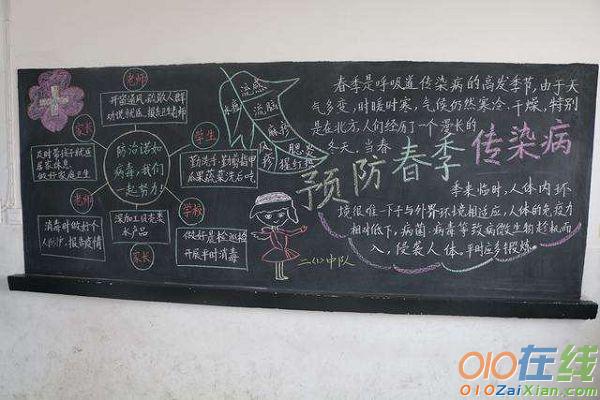 老师
开窗通风，疏散人群
对说就医，报告卫老师
家长
及时带孩子就医
居家休息
做好家庭卫生
防治诺如
病毒，我们
一起努力！
学生
勤洗手 勤剪指甲
瓜果蔬菜洗后吃
老师
消毒时做好个
人防护，报告疫情
深加工贝壳类
水产品
家长
学校
做好晨检巡检
开展平时消毒
流感
水痘
流脑
麻疹
风疹
腮炎
猩红热
春季是呼吸道传染病的高发季节，由于天
气多变，时暖时寒，气候仍然寒冷、干燥，特别
是在北方，人们经历了一个漫长的
冬天，当春
预防春季传染病
季来临时，人体内环
境很难一下子与外界环境相适应，人体的免疫力
相对低下，病菌、病毒等致病微生物趁机而
入，侵袭人体，平时应多锻炼。
二(2)中队
010在线
010ZaiXian.com